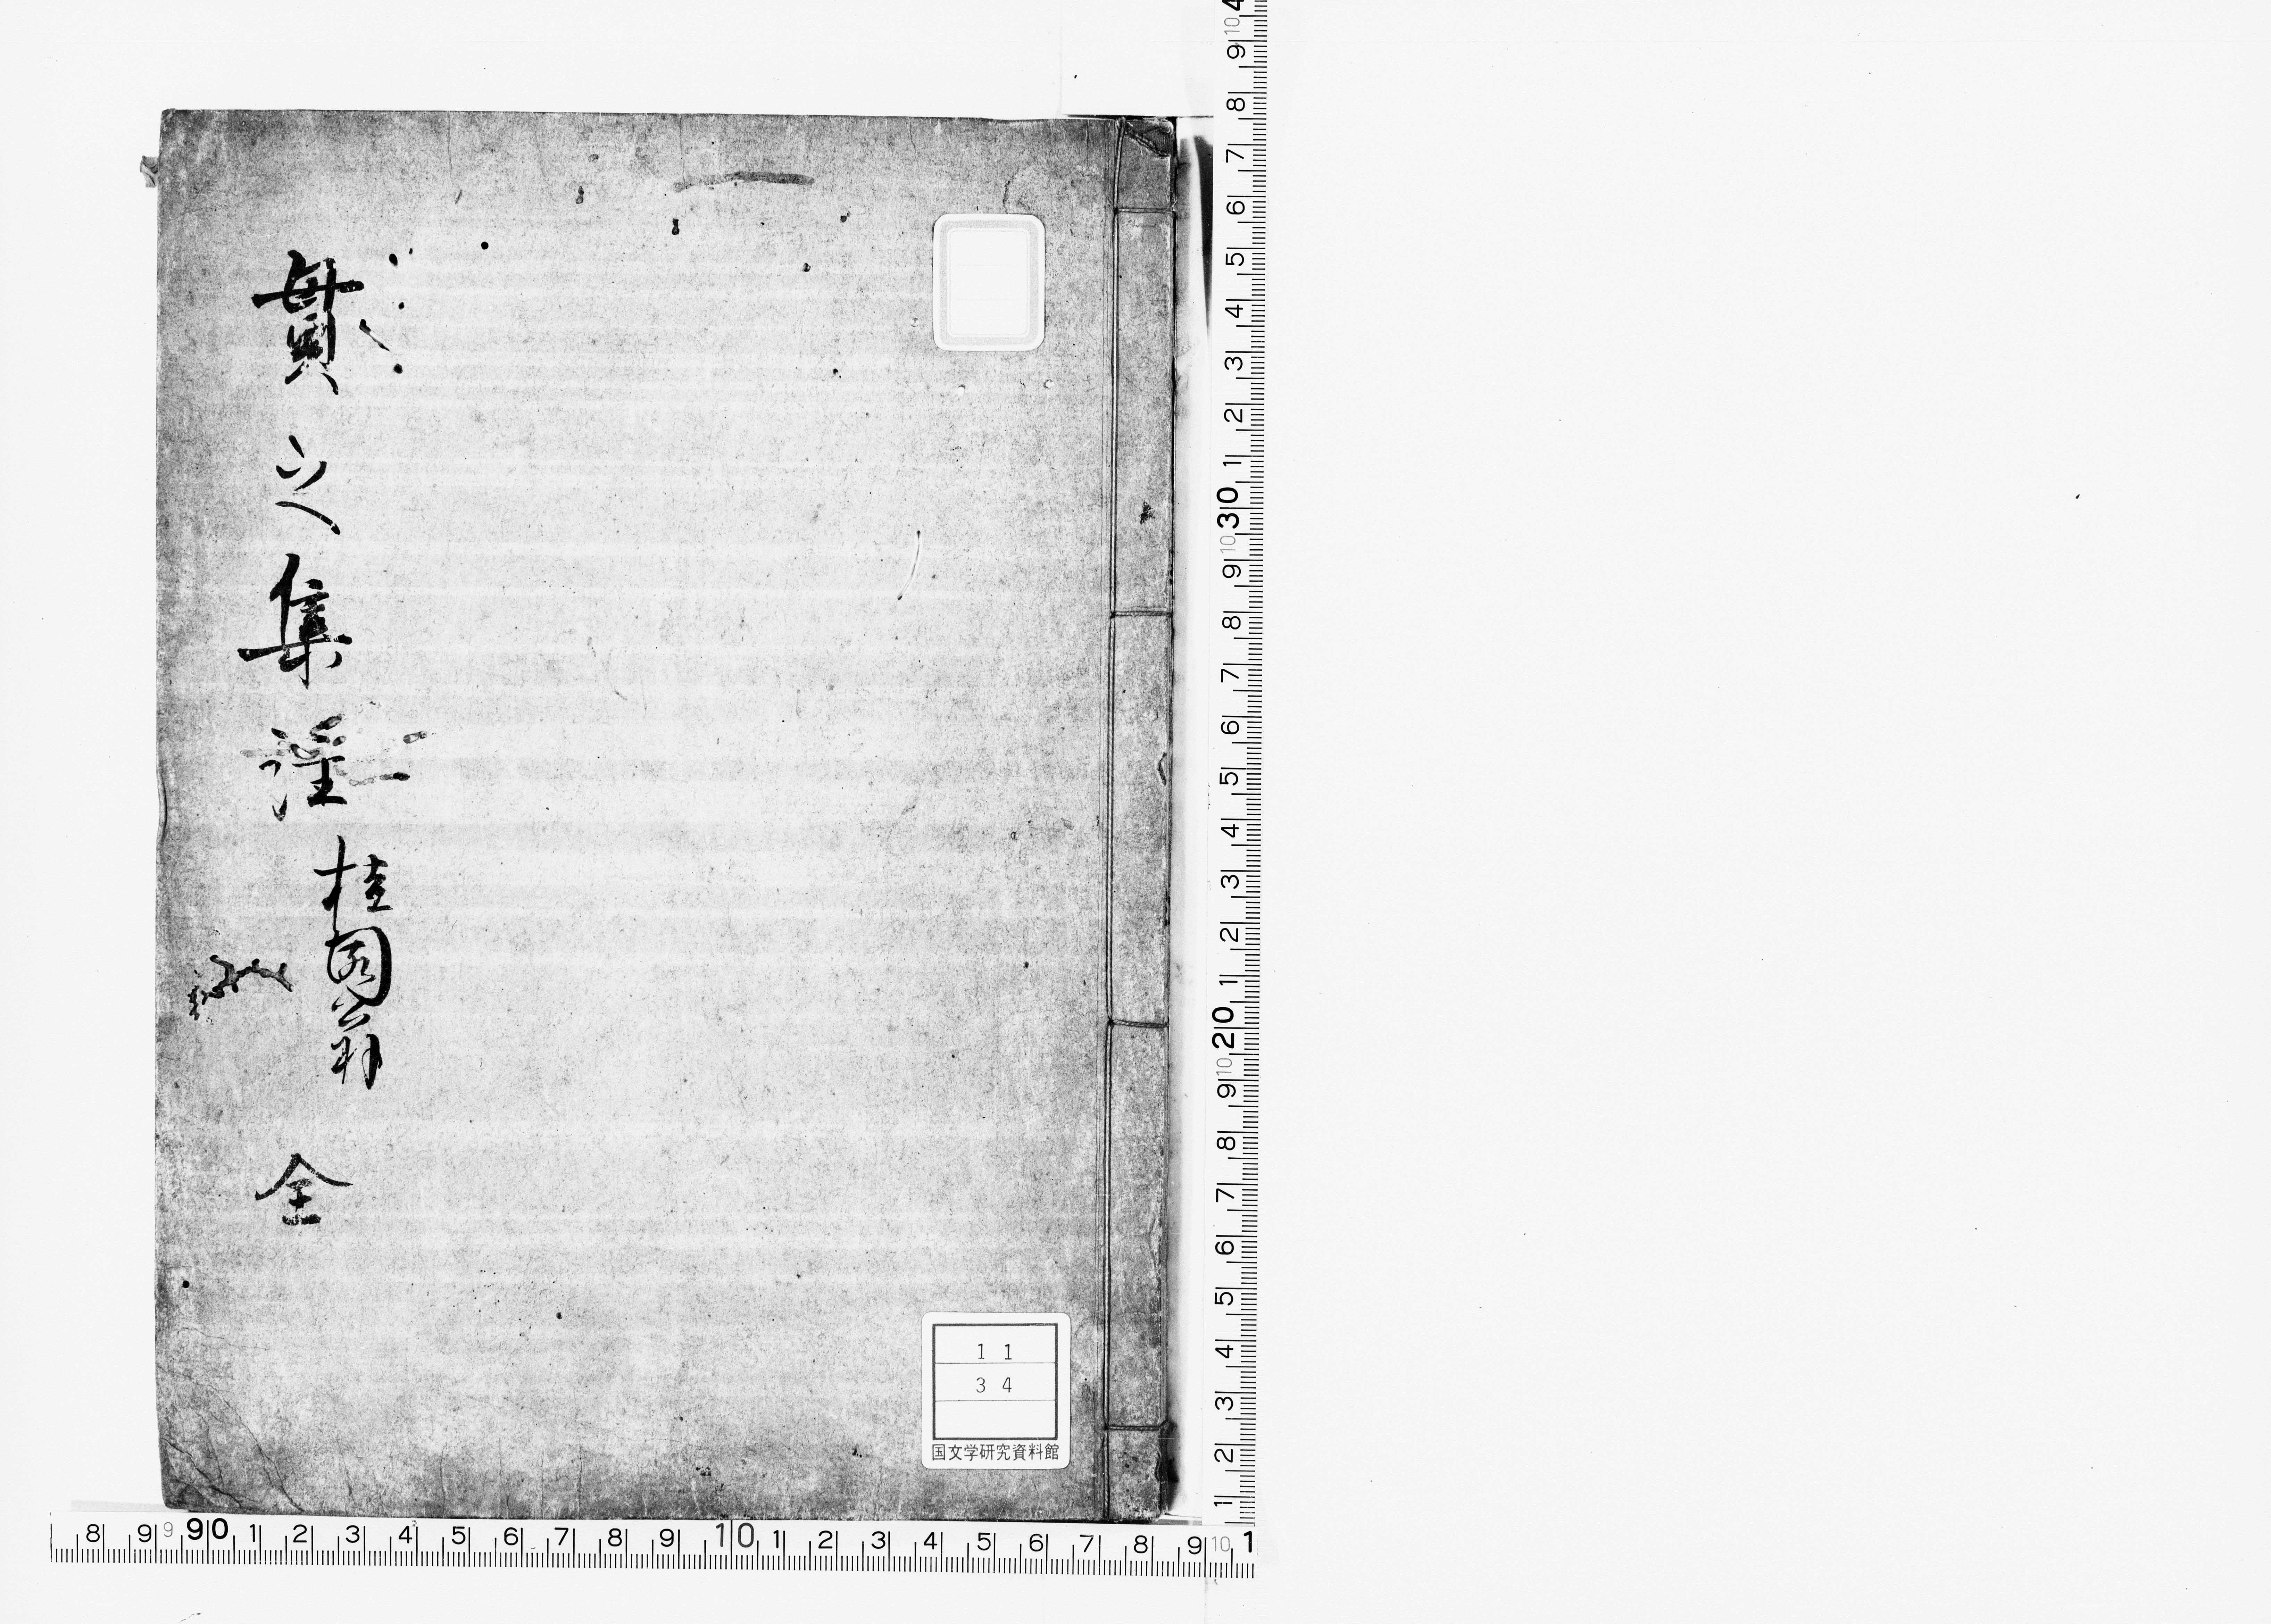 貫之集注 桂園翁 全
11
34
国文学研究資料館